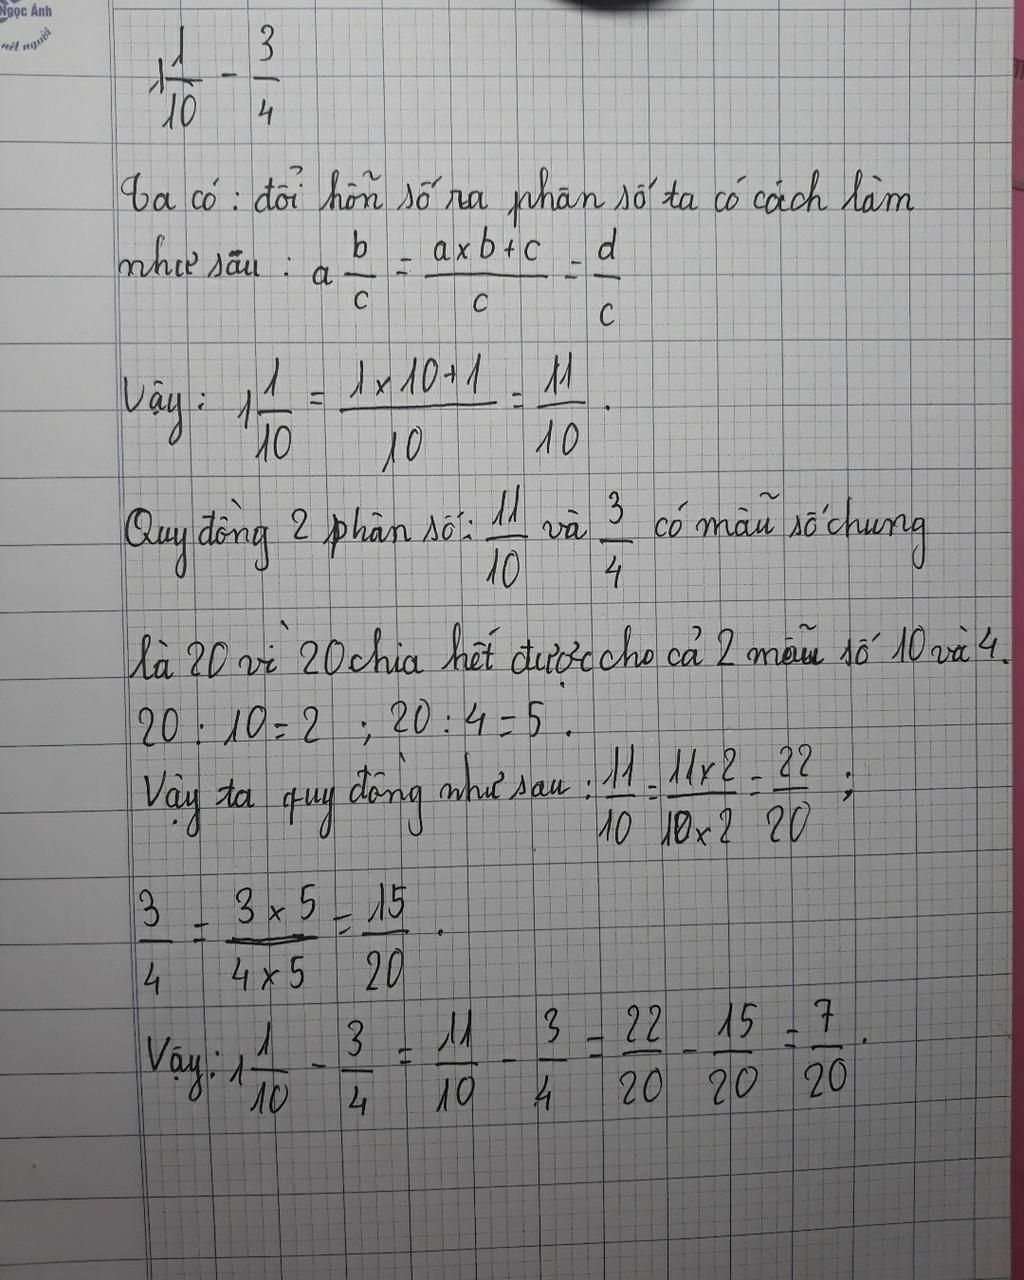 Ngọc Ánh
nét người
1 1/10 - 3/4
Ta có : đổi hỗn số ra phân số ta có cách làm
như sau : a b/c = (a x b + c)/c = d/c
Vậy : 1 1/10 = (1 x 10 + 1)/10 = 11/10 .
Quy đồng 2 phân số : 11/10 và 3/4 có mẫu số chung
là 20 vì 20 chia hết được cho cả 2 mẫu số 10 và 4.
20 : 10 = 2 ; 20 : 4 = 5 .
Vậy ta quy đồng như sau : 11/10 = (11 x 2)/(10 x 2) = 22/20 ;
3/4 = (3 x 5)/(4 x 5) = 15/20 .
Vậy : 1 1/10 - 3/4 = 11/10 - 3/4 = 22/20 - 15/20 = 7/20 .